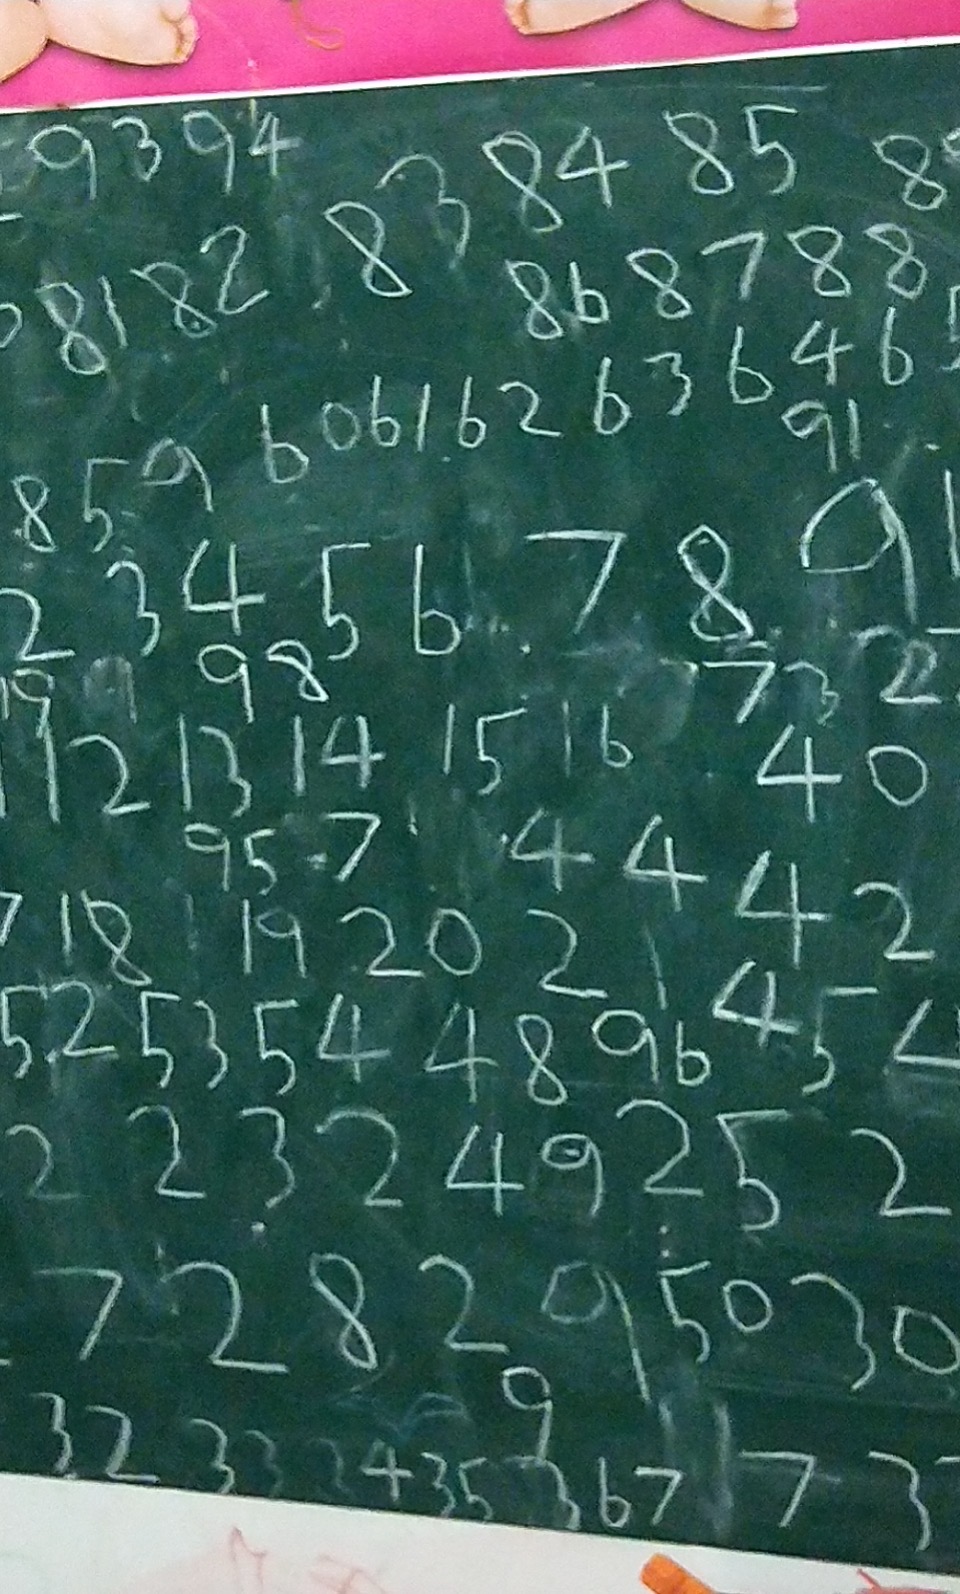 9 3 9 4 8 4 8 5 8
81 82 83 86 8 7 8 8
6 0 6 1 6 2 6 3 6 4 6
91
8 5 9
2 3 4 5 6 7 8 9 1
19 98 7 3 2
1 12 13 14 15 16 4 0
95 7 4 4 4 2
7 18 19 2 0 2 1
52 53 54 4 8 96 4 5 4
2 2 3 2 4 9 2 5 2
7 2 8 2 9 5 0 3 0
9
32 3 3 3 4 35 3 6 7 7 3